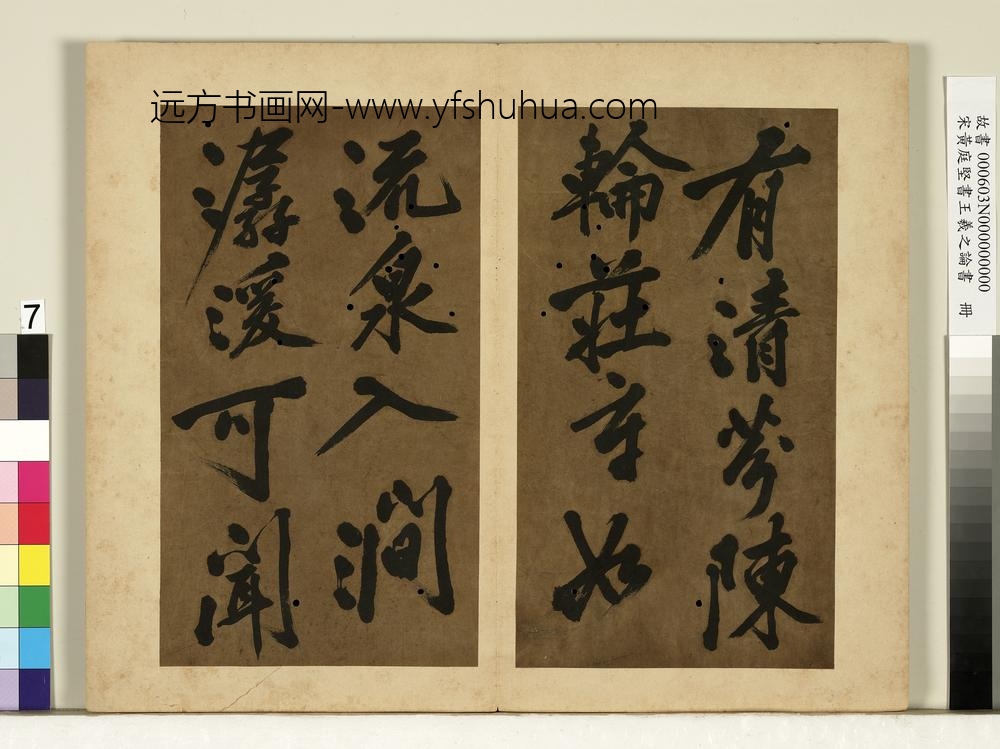 远方书画网-www.yfshuhua.com
有清芬陳
輪莊如
流泉入澗
潺湲可聞
故書 000603N000000000
宋黃庭堅書王羲之論書 冊
7